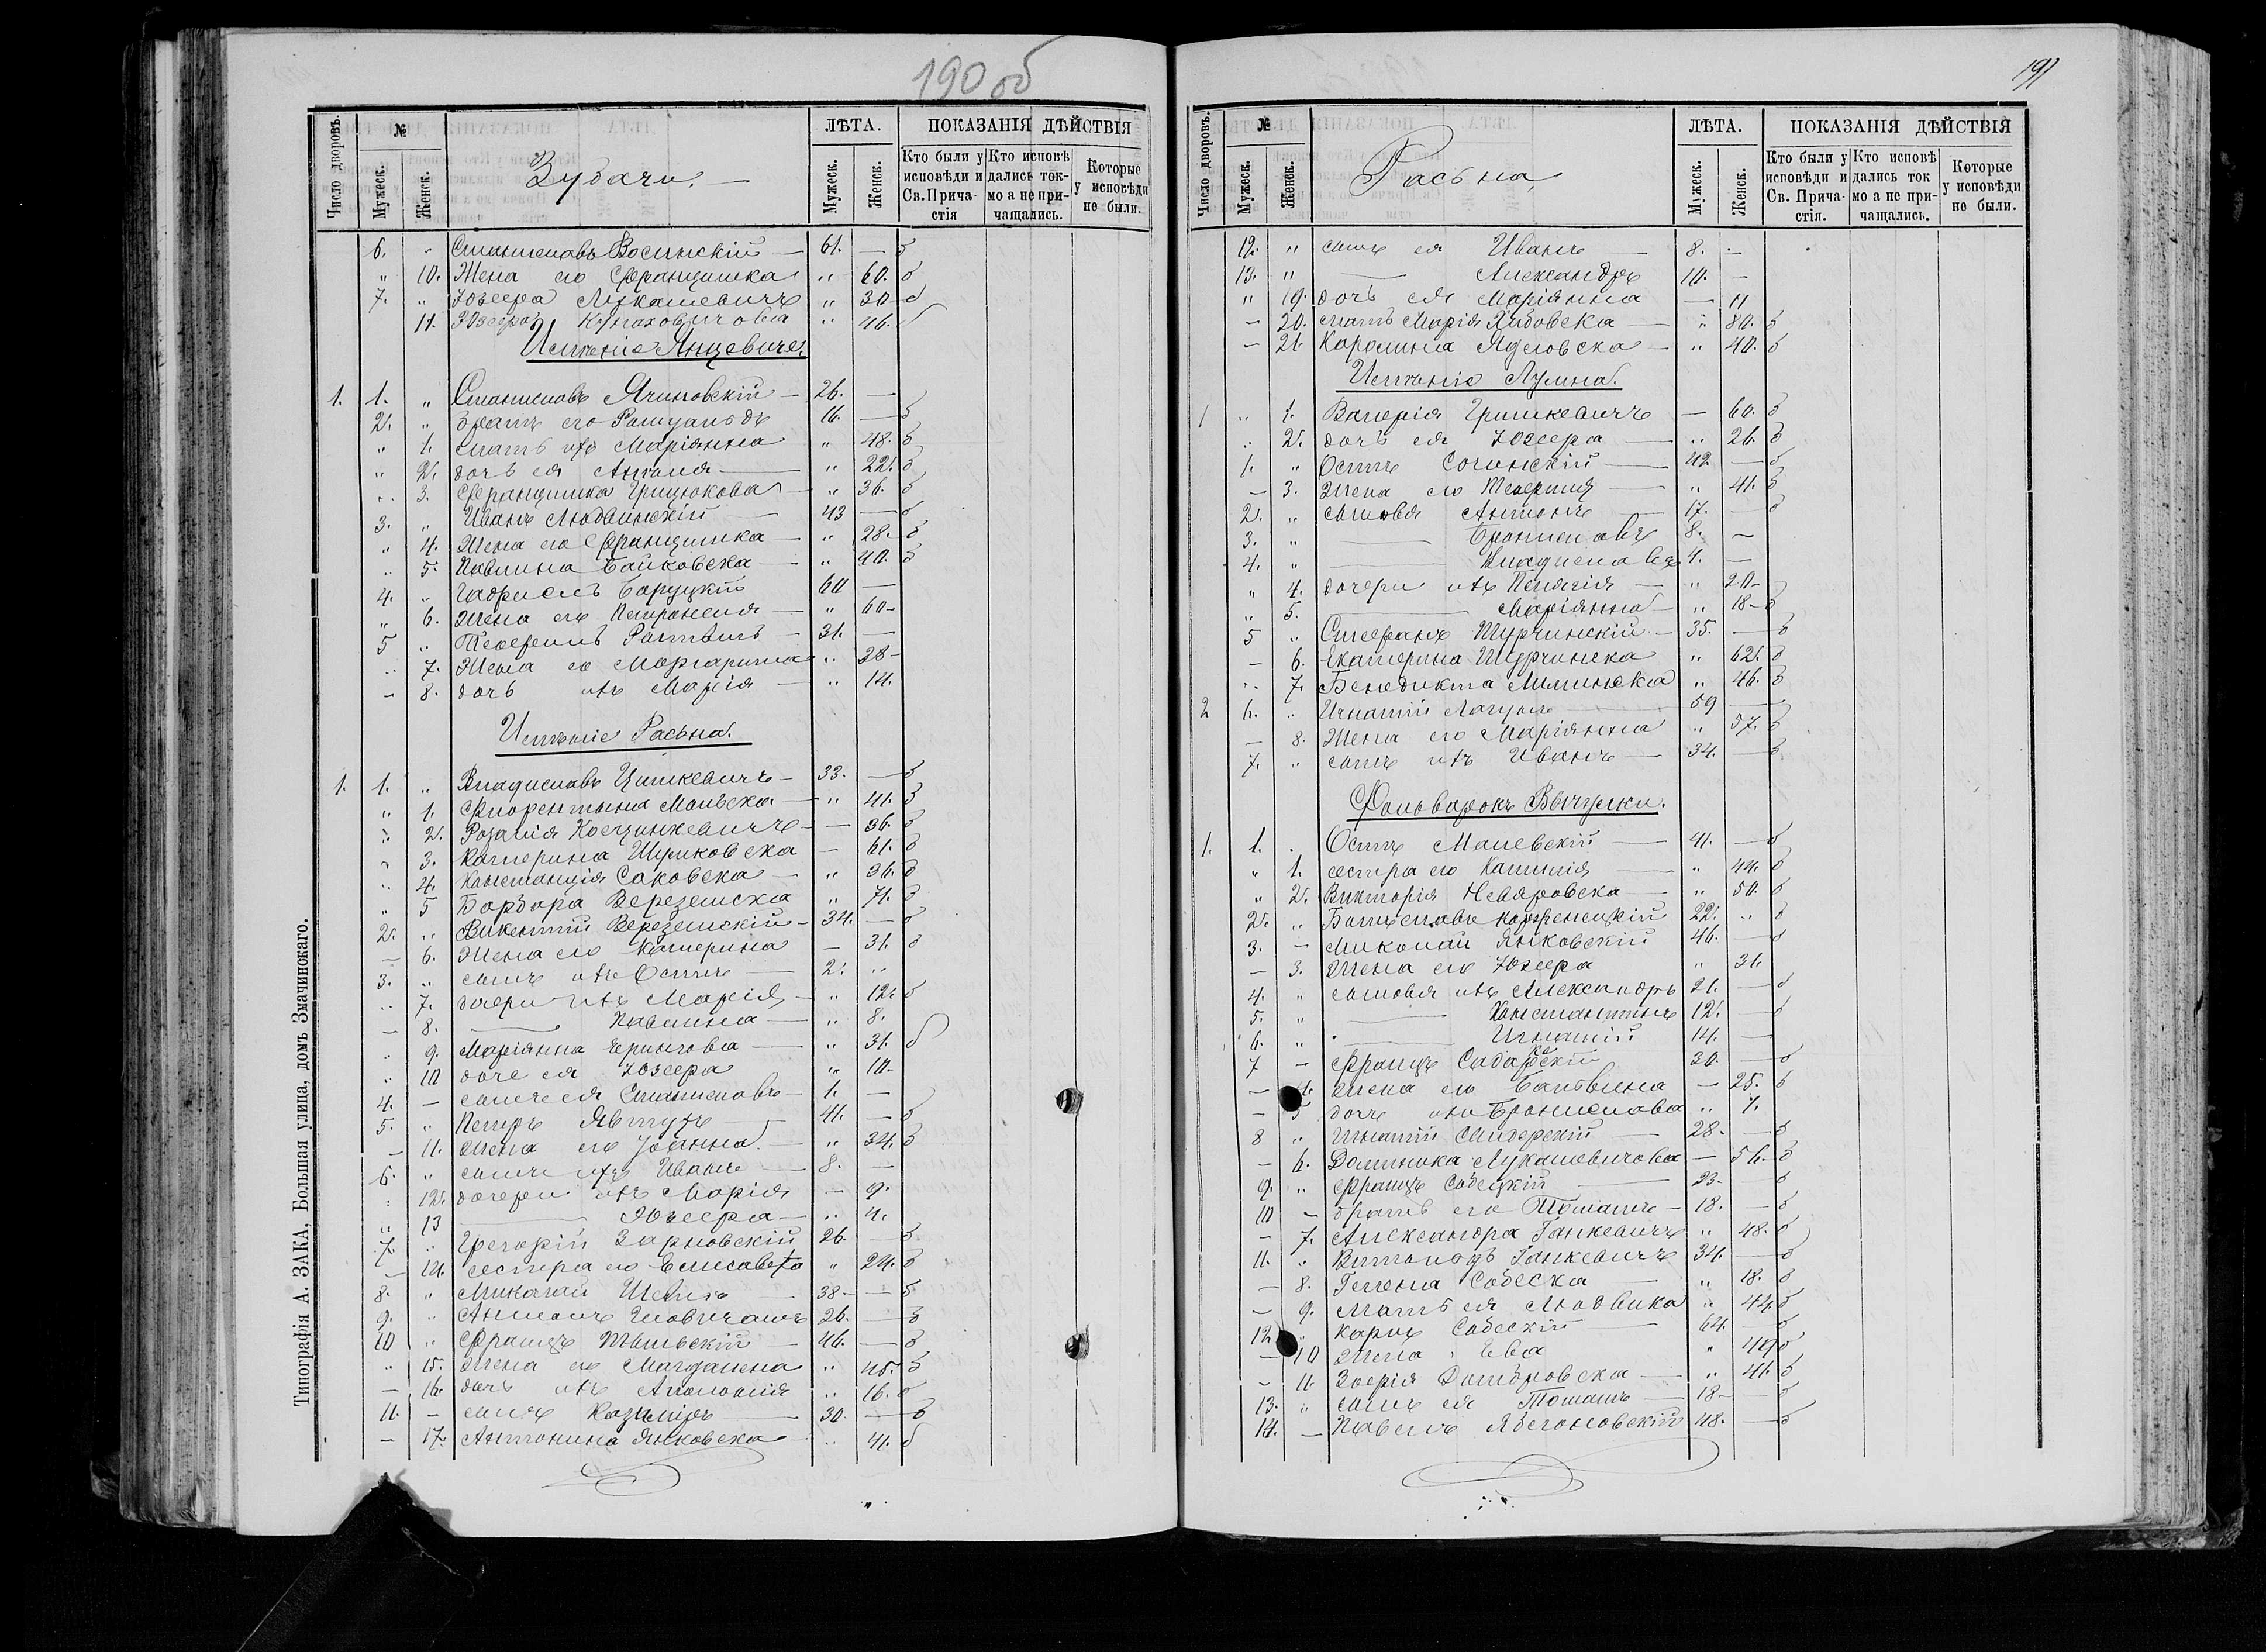 190 об
Число дворовъ.
№
Мужеск.
Женск.
Зубачи.
ЛѢТА.
Мужеск.
Женск.
ПОКАЗАНІЯ ДѢЙСТВІЯ
Кто были у исповѣди и Св. Прича-стія
Кто исповѣ дались ток-мо а не при-чащались.
Которые у исповѣди не были.
6. " Станиславъ Восинскій — 61. — б
" 10. Жена его Францишка " 60. б
7. " Юзефа Лукашевичъ " 30 — б
11. Юзефа " 46.
Имѣніе Янцевичи
1. 1. " Станиславъ Ячиновскій — 26. —
2. " братъ его Ромуальдъ 16. — б
" 1. мать ихъ Маріянна " 48. б
" 2. дочь ея Анталя — " 22. б
" 3. Францишка Грицюкова — " 36. б
3. " Иванъ Людвинскій — 43 — б
" 4. Жена его Францишка — " 28. б
" 5. Павлина Байковска — " 40. б
4. " Габріель Баруцкій 60 —
" 6. Жена его Петронеля — " 60 —
5 " Теофиль — 31. —
" 7. Жена его Маргарита " 28 —
- 8. дочь ихъ Марія — " 14.
Имѣніе Расьна.
1. 1. " Владиславъ Цишкевичъ — 33. — б
" 1. Флорентына Мальска — " 41. б
" 2. Розалія — 36. б
" 3. Катерина Шумковска — 61. б
" 4. Констанція Саковска — " 36. б
" 5 Барбара Верезинска " 71. б
2. " Викентій Верезинскій — 34. — б
— 6. Жена его Катерина — 31. б
3. " сынъ ихъ Осипъ — 2. "
" 7. дочери ихъ Марія — " 12. б
— 8. — Павлина — " 8.
" 9. Маріянна — " 31. б
" 10 дочь ея Юзефа " 10 —
4. — сынъ ея Станиславъ — 1. —
5. " Петръ Явтухъ 41. — б
— 11. Жена его Іоанна — " 34. б
6. " сынъ ихъ Иванъ — 8. —
" 12. дочери ихъ Марія — 9.
" 13 — Юзефа — " 4.
7. " Грегорій Зарновскій 26. — б
— 14. сестра его Елисавета " 24. б
8. " Миколай 38 — — б
9. " Антонъ 26. — б
10 " Францъ 46. — б
" 15. Жена его Магдалена " 45. б
— 16. дочь ихъ Аполонія " 16. б
11. — сынъ Казиміръ — 30. — б
— 17. Антонина Янковска " 41. б
Типографія А. ЗАКА, Большая улица, домъ Змачинскаго.
191
Число дворовъ.
№
Мужеск.
Женск.
Расьна
ЛѢТА.
Мужеск.
Женск.
ПОКАЗАНІЯ ДѢЙСТВІЯ
Кто были у исповѣди и Св. Прича-стія.
Кто исповѣ дались ток мо а не при-чащались.
Которые у исповѣди не были.
12. " сынъ ея Иванъ — 8. —
13. " — Александръ 10. —
" 19. дочь ея Маріянна — 11
— 20. мать Марія — " 80. б
— 21. Каролина — " 40. б
Имѣніе Лумна.
1 " 1. Валерія Гришкевичъ — 60. б
" 2. дочь ея Юзефа — " 26. б
1. " Осипъ Сочинскій — 42 — б
— 3. Жена его " 41. б
2. " сыновья Антонъ — 17. — б
3. " — Брониславъ 8. —
4. " — Владиславъ 4. —
" 4. дочери ихъ Пелагія — " 20 —
" 5. — Маріянна — " 18 — б
5 " Стефанъ Шурчинскій — 35. — б
— 6. Екатерина Шурчинска " 62. б
" 7. Бенедикта " 46. б
2 6. " Игнатій — 59 —
— 8. Жена его Маріянна " 57. б
7. " сынъ ихъ Иванъ — 34. — б
Фольваркъ Вычулки.
1. 1. " Осипъ Малевскій — 41. — б
" 1. сестра его Камилія — " 44. б
" 2. Викторія Невяровска — " 50. б
2. " Болеславъ 22. " б
3. — Миколай Янковскій 46. — б
— 3. Жена его Юзефа " 31.
4. " сыновья ихъ Александръ 21. — б
5. " — Константинъ 12. — б
6. " — Игнатій 14. —
7 — Францъ 30. — б
— Жена его Бальвина — 25. б
— 5 дочь ихъ Бронислава " 1.
8 " Игнатій Сидерскій — 28. — б
— 6. Доминика Лукашевичова — 56. б
9. " Францъ Собецкій — 23. — б
10 — братъ его Томашъ — 18. — б
— 7. Александра Ганкевичъ " 48. б
11. " Витольдъ Ганкевичъ 34. — б
— 8. Гелена Собеска — " 18. б
— 9. мать ея Людвика " 44. б
12 " Карлъ Собескій — 64. — б
— 10 Жена " Ева " 49 б
— 11. Зофія Домбровска — " 41. б
13. " сынъ ея Томашъ — 18 — — б
14. — Павелъ 48. — б